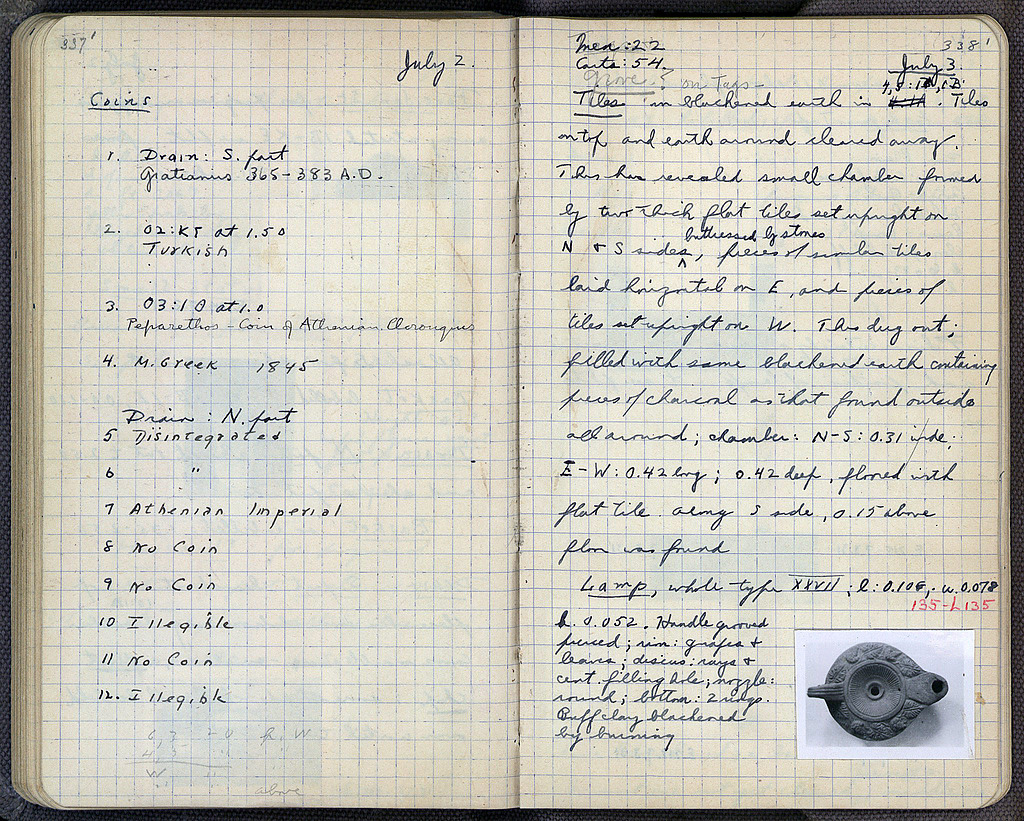 337'
July 2.
Coins
1. Drain: S. part
Gratianus 365-383 A.D.
2. 02:KS at 1.50
Turkish
3. 03:10 at 1.0
Peparethos - Coin of Athenian Clerouquis
4. M. Greek 1845
Drain: N. part
5 Disintegrated
6 "
7 Athenian Imperial
8 No Coin
9 No Coin
10 Illegible
11 No Coin
12. Illegible
above
338'
Men: 22
Carts: 54.
July 3.
Grove? on Tags-
Tiles in blackened earth in . Tiles
on top and earth around cleared away.
This has revealed small chamber formed
by two thick flat tiles set upright on
buttressed by stones
N & S sides, pieces of similar tiles
laid horizontal on E, and pieces of
tiles set upright on W. This dug out;
filled with same blackened earth containing
pieces of charcoal as that found outside
all around; chamber: N-S: 0.31 wide;
E-W: 0.42 long; 0.42 deep, floored with
flat tile. Along S side, 0.15 above
floor was found
Lamp, whole type XXVII; l: 0.106, w. 0.078
135-L135
h. 0.052. Handle grooved
pierced; rim: grapes &
leaves; discus: rays &
cent. filling hole; nozzle:
round; bottom: 2 rings.
Buff clay blackened
by burning